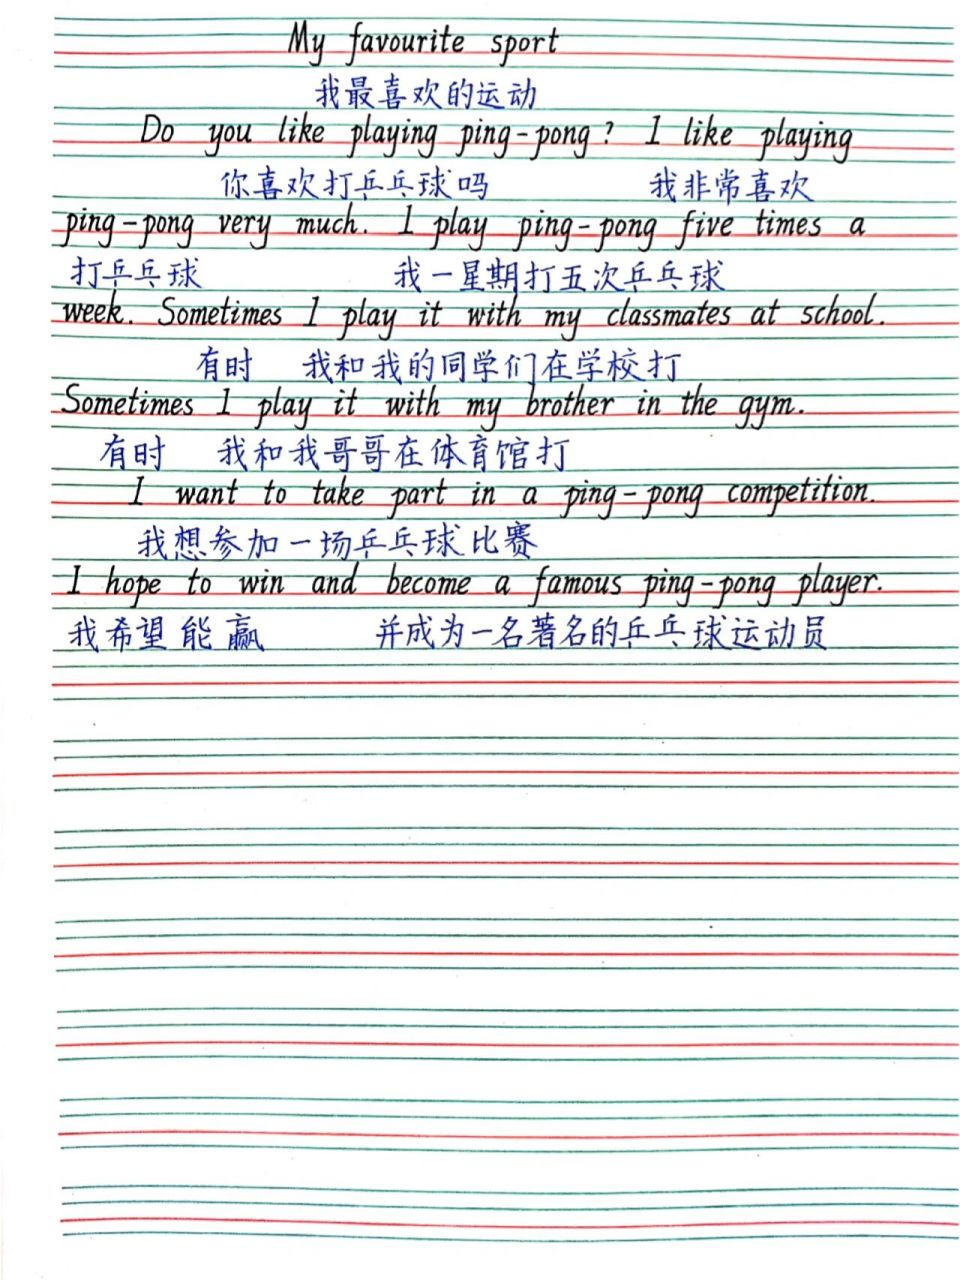 My favourite sport
我最喜欢的运动
Do you like playing ping-pong? I like playing
你喜欢打乒乓球吗 我非常喜欢
ping-pong very much. I play ping-pong five times a
打乒乓球 我一星期打五次乒乓球
week. Sometimes I play it with my classmates at school.
有时 我和我的同学们在学校打
Sometimes I play it with my brother in the gym.
有时 我和我哥哥在体育馆打
I want to take part in a ping-pong competition.
我想参加一场乒乓球比赛
I hope to win and become a famous ping-pong player.
我希望能赢 并成为一名著名的乒乓球运动员